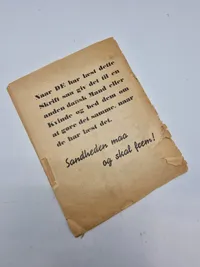 Naar DE har læst dette
Skrift saa giv det til en
anden dansk Mand eller
Kvinde og bed dem om
at gøre det samme, naar
de har læst det.
Sandheden maa
og skal frem!